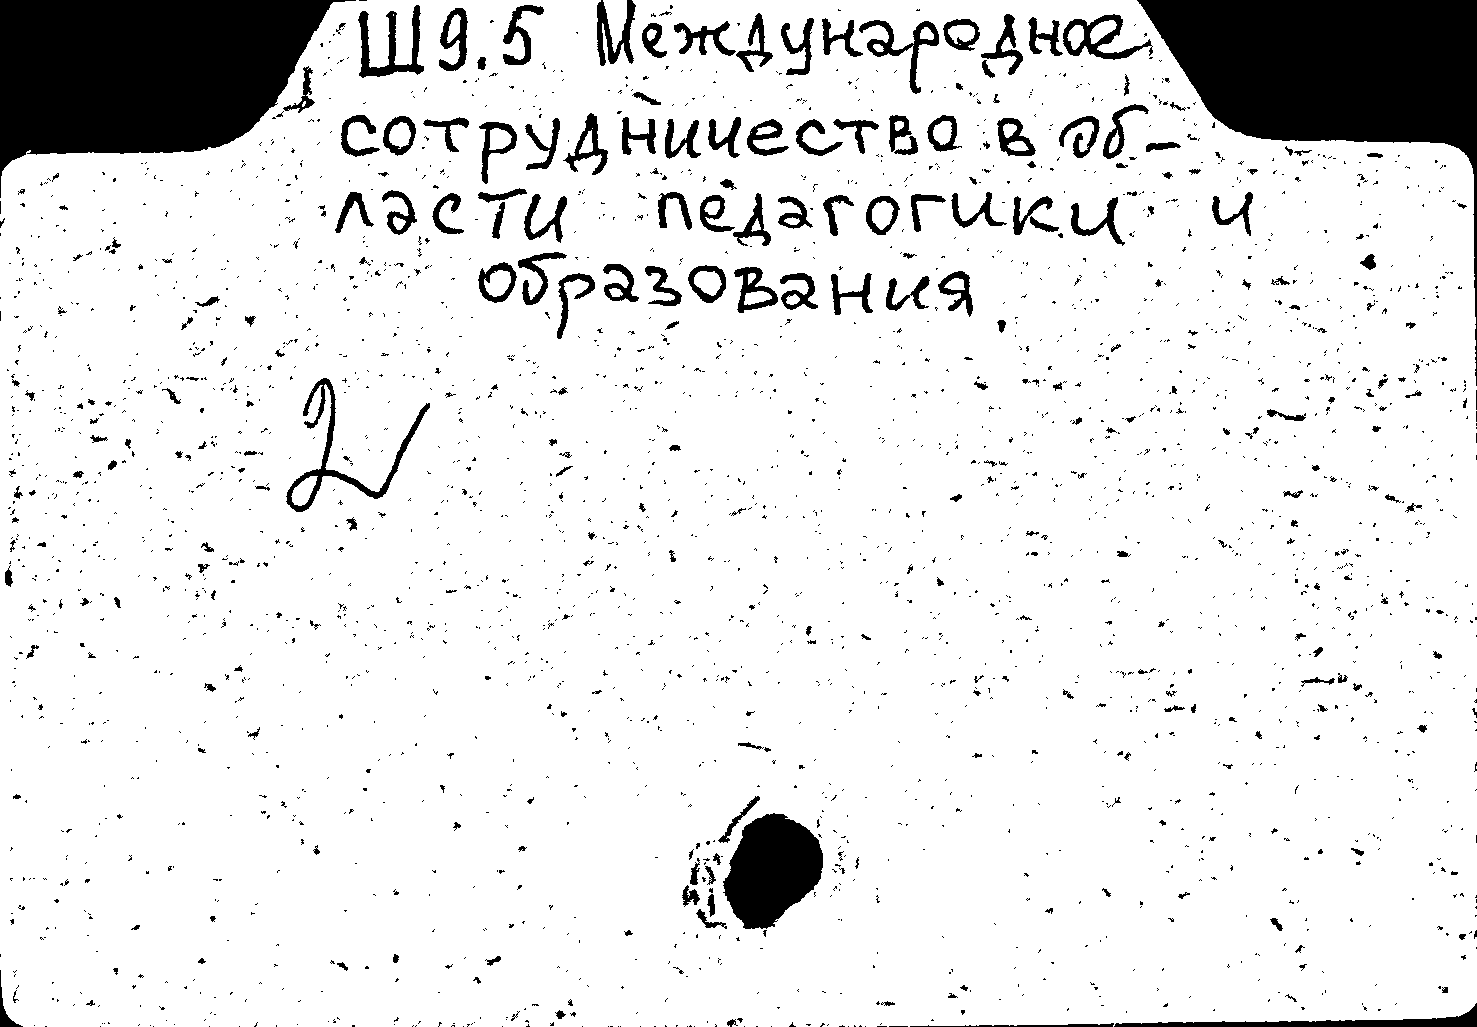 Ш9.5 Международное
сотрудничество в об-
ласти педагогики и
образования.